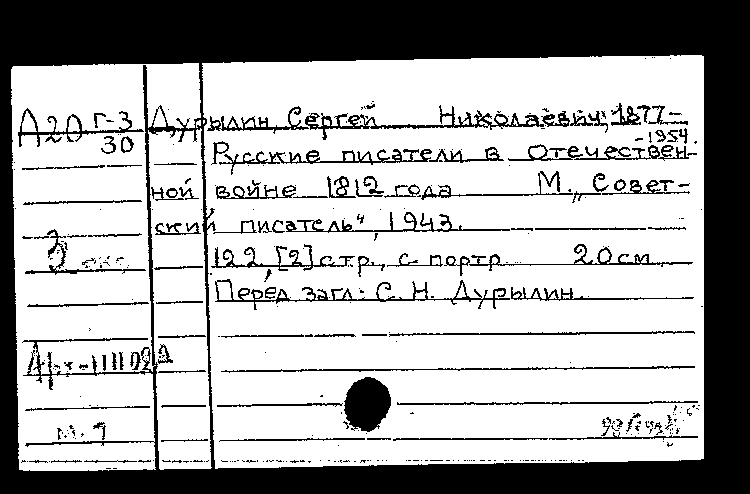 А20 Г-3
30
Дурылин, Сергей Николаевич, 1877-
-1954.
Русские писатели в Отечествен-
ной войне 1812 года М., „Совет-
ский писатель", 1943.
122, [2] стр., с портр 20 см
3 экз
Перед загл: С. Н. Дурылин.
м. 9